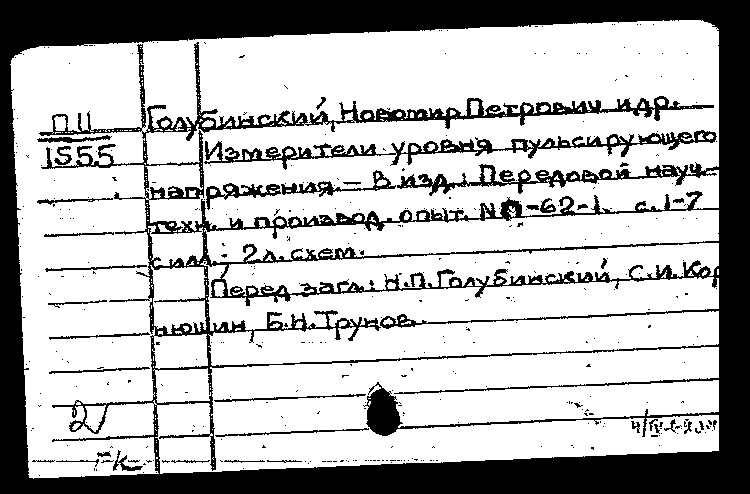 П11 Голубинский, Новомир Петрович и др.
1555 Измерители уровня пульсирующего
напряжения. — В изд.: Передовой науч.-
техн. и производ. опыт. №П-62-1. с.1-7
с илл.; 2 л. схем.
Перед загл.: Н.П.Голубинский, С.И.Кор
нюшин, Б.Н.Трунов.
2